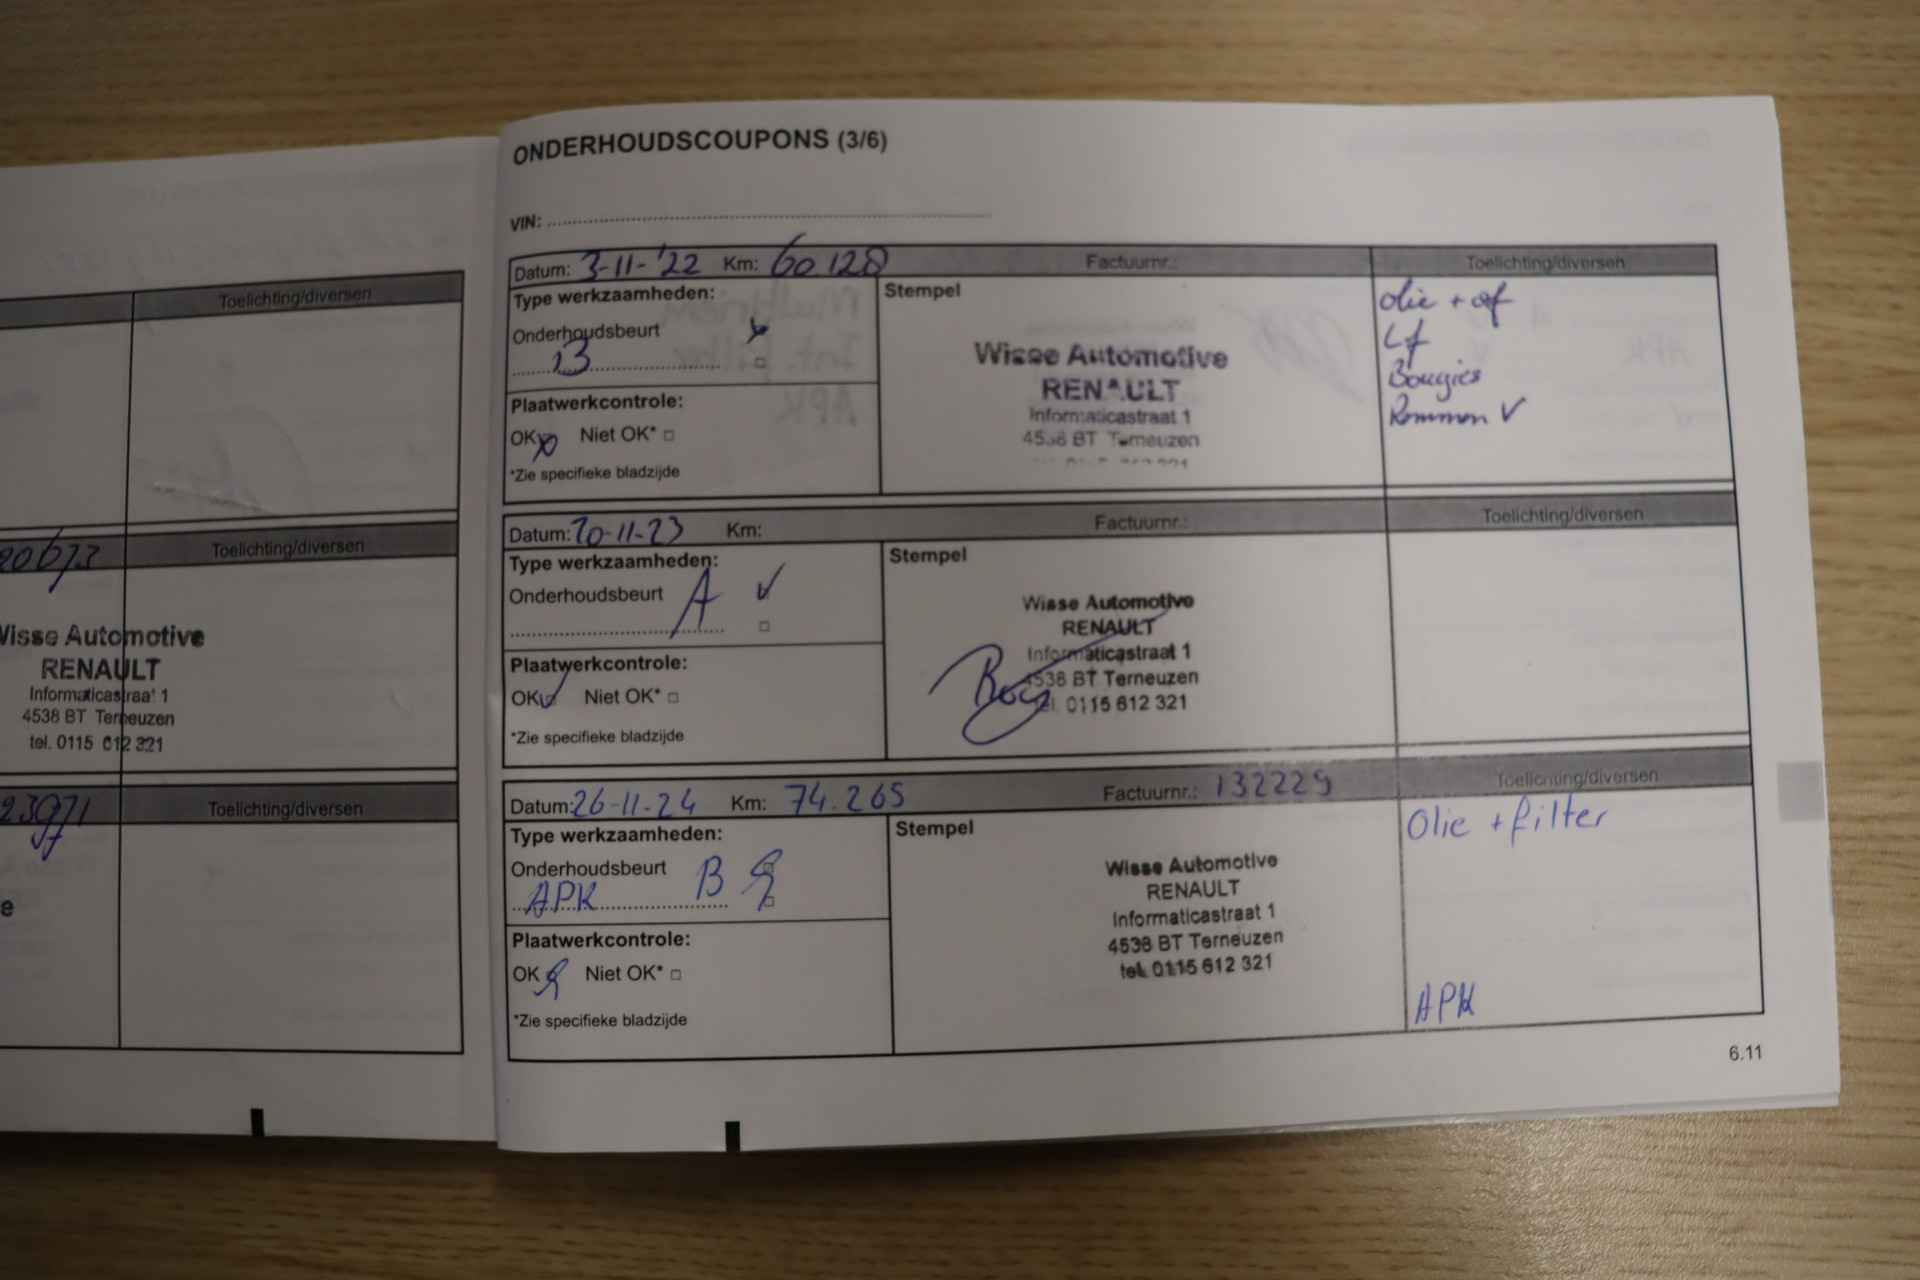 Toelichting/diversen
20673
Toelichting/diversen
Wisse Automotive
RENAULT
Informaticastraat 1
4538 BT Terneuzen
tel. 0115 612 321
23971
Toelichting/diversen
e
ONDERHOUDSCOUPONS (3/6)
VIN:
Datum: 3-11-'22 Km: 60128 Factuurnr.: Toelichting/diversen
Type werkzaamheden:
Onderhoudsbeurt
B
Plaatwerkcontrole:
OK Niet OK*
*Zie specifieke bladzijde
Stempel
Wisse Automotive
RENAULT
Informaticastraat 1
4538 BT Terneuzen
olie + of
Lf
Bougies
Remmen ✓
Datum: 20-11-23 Km: Factuurnr.: Toelichting/diversen
Type werkzaamheden:
Onderhoudsbeurt A ✓
Plaatwerkcontrole:
OK ✓ Niet OK*
*Zie specifieke bladzijde
Stempel
Wisse Automotive
RENAULT
Informaticastraat 1
4538 BT Terneuzen
tel. 0115 612 321
Datum: 26-11-24 Km: 74.265 Factuurnr.: 132229 Toelichting/diversen
Type werkzaamheden:
Onderhoudsbeurt B
APK
Plaatwerkcontrole:
OK Niet OK*
*Zie specifieke bladzijde
Stempel
Wisse Automotive
RENAULT
Informaticastraat 1
4538 BT Terneuzen
tel. 0115 612 321
Olie + filter
APK
6.11